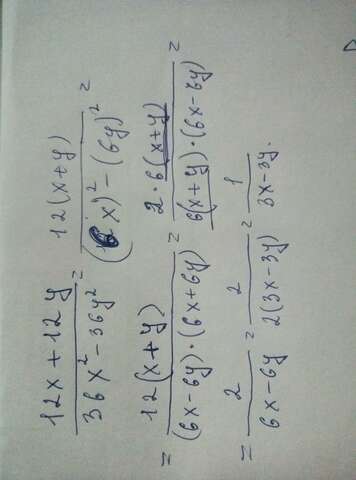 (12x + 12y)/(36x² - 36y²) = 12(x+y)/((6x)² - (6y)²) =
= 12(x+y)/((6x-6y)·(6x+6y)) = 2·6(x+y)/(6(x+y)·(6x-6y)) =
= 2/(6x-6y) = 2/(2(3x-3y)) = 1/(3x-3y).